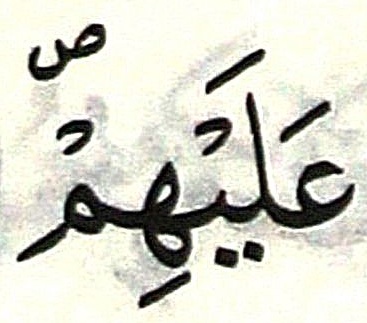 عَلَيْهِمْ ۖص